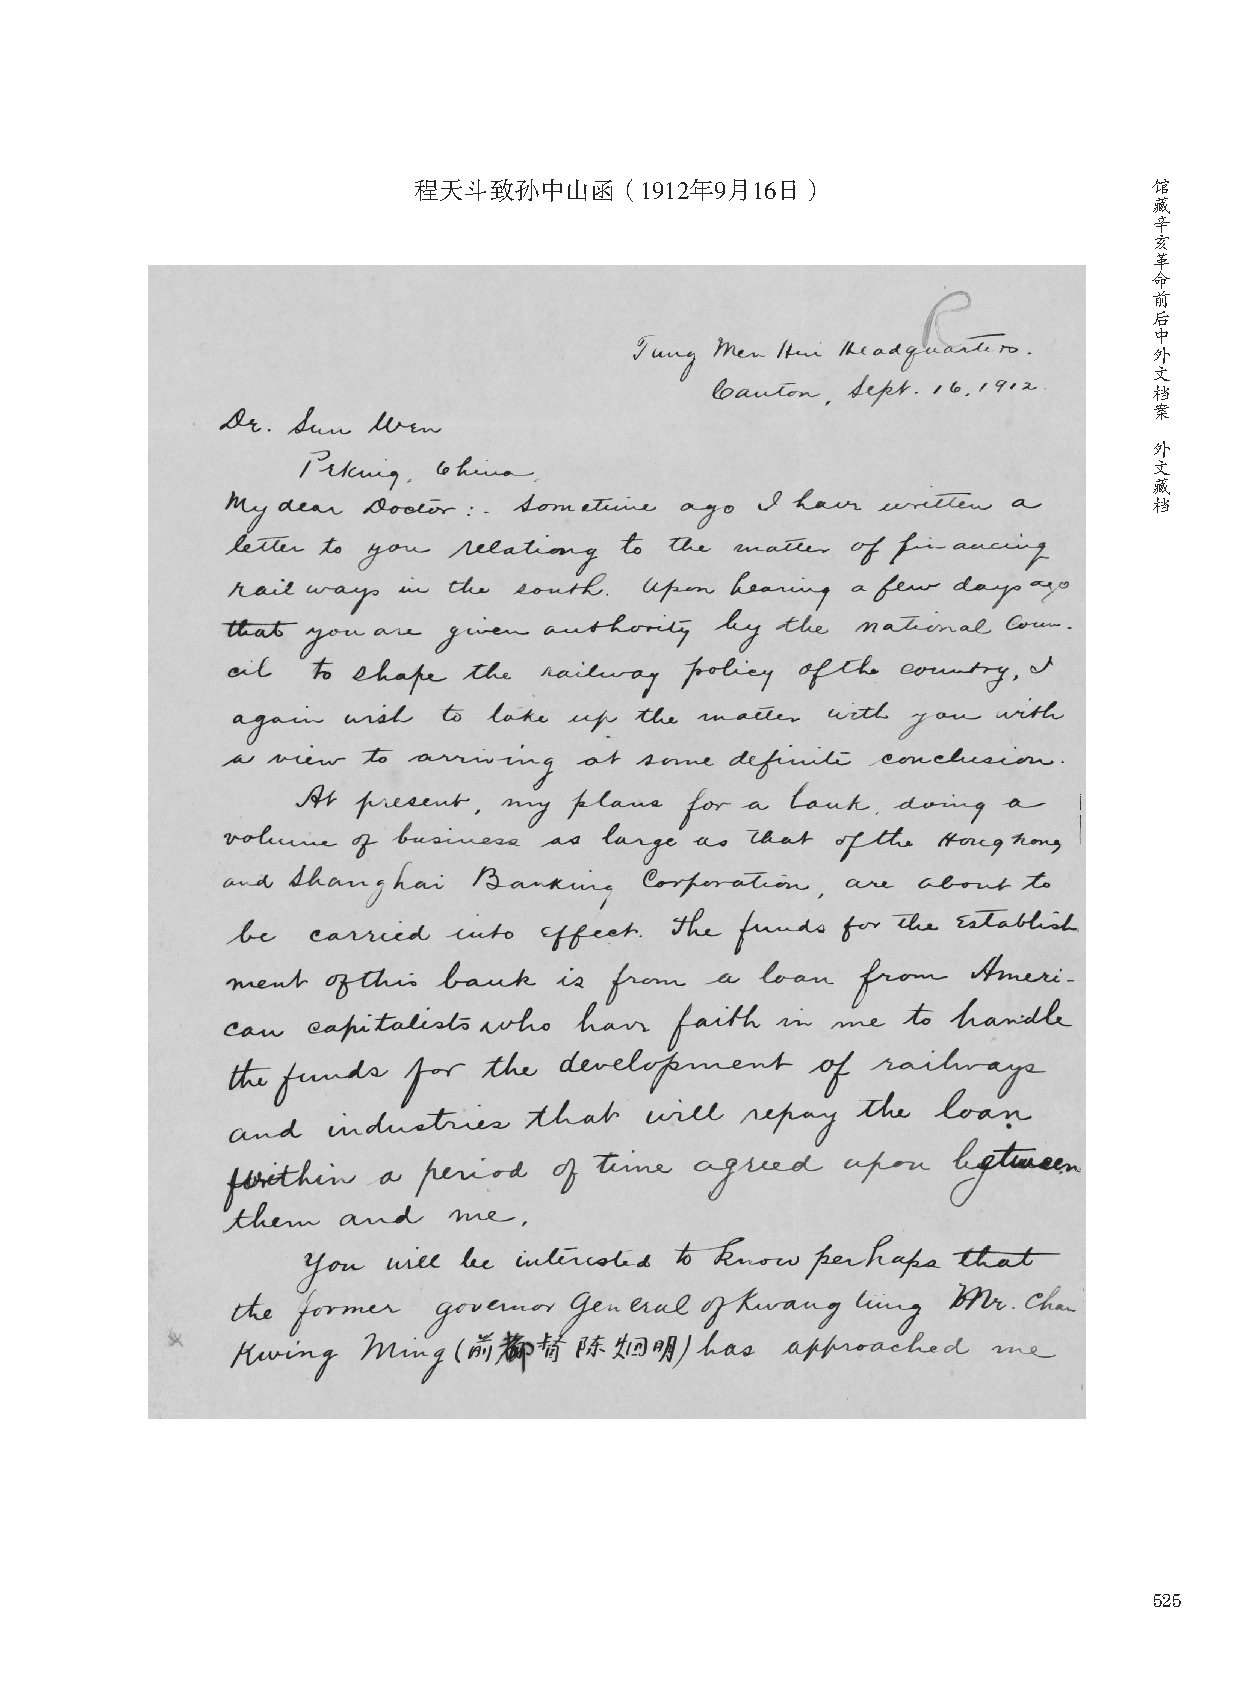 程天斗致孙中山函（1912年9月16日）
馆藏辛亥革命前后中外文档案 外文藏档
R
Tung Men Hui Headquarters.
Canton, Sept. 16, 1912.
Dr. Sun Wen
Peking, China.
My dear Doctor:- Sometime ago I have written a
letter to you relationg to the matter of financing
railways in the south. Upon hearing a few days ago
that you are given authority by the national Coun-
cil to shape the railway policy of the country, I
again wish to take up the matter with you with
a view to arriving at some definite conclusion.
At present, my plans for a bank, doing a
volume of business as large as that of the Hongkong
and Shanghai Banking Corporation, are about to
be carried into effect. The funds for the establish
ment of this bank is from a loan from Ameri-
can capitalists who have faith in me to handle
the funds for the development of railways
and industries that will repay the loan
within a period of time agreed upon between
them and me.
You will be interested to know perhaps that
the former governor General of Kwangtung Mr. Chan
Kwing Ming (前都督陈炯明) has approached me
525